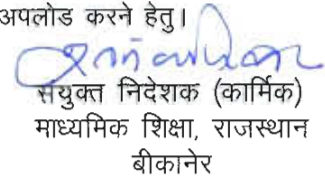 अपलोड करने हेतु।
संयुक्त निदेशक (कार्मिक)
माध्यमिक शिक्षा, राजस्थान
बीकानेर